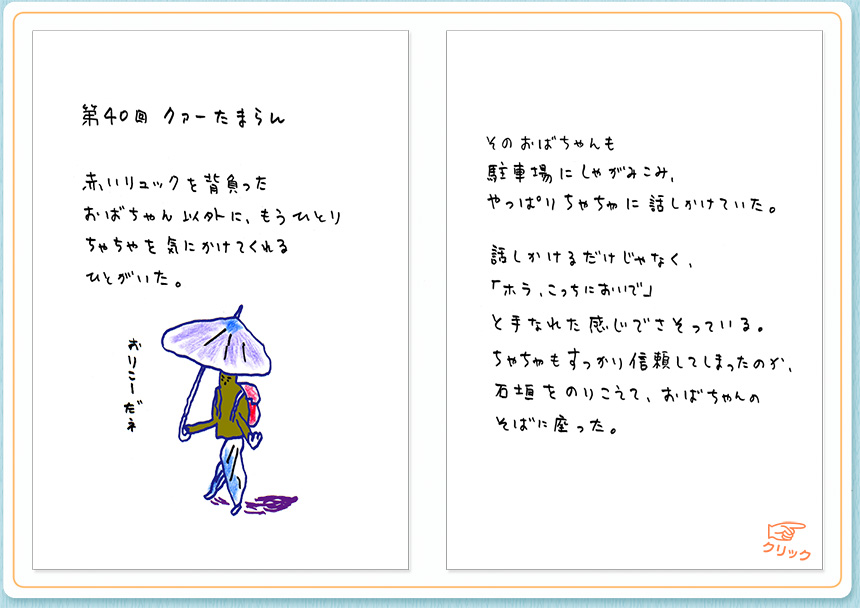 第40回 クァーたまらん
赤いリュックを背負った
おばちゃん以外に、もうひとり
ちゃちゃを気にかけてくれる
ひとがいた。
おりこーだネ
そのおばちゃんも
駐車場にしゃがみこみ、
やっぱりちゃちゃに話しかけていた。
話しかけるだけじゃなく、
「ホラ、こっちにおいで」
と手なれた感じでさそっている。
ちゃちゃもすっかり信頼してしまったのか、
石垣をのりこえて、おばちゃんの
そばに座った。
クリック